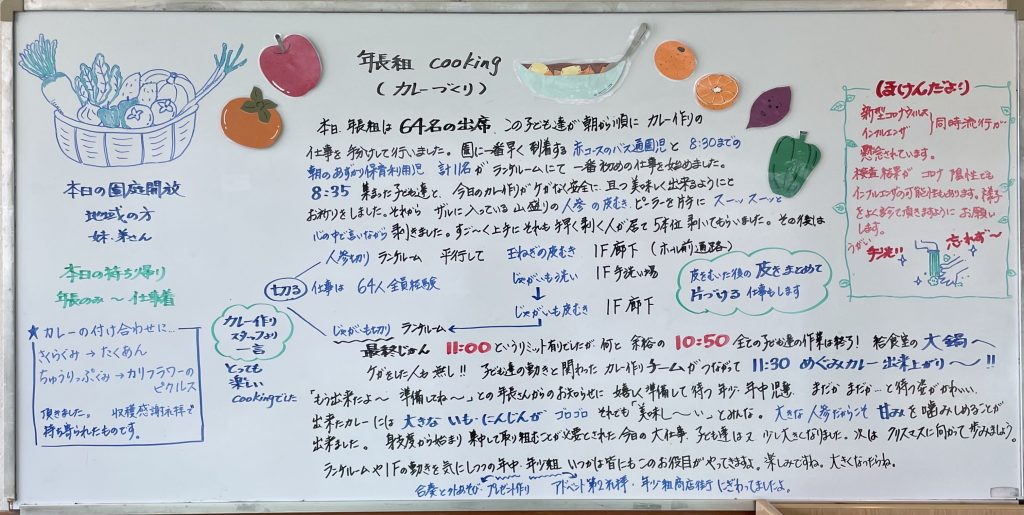 年長組 cooking
(カレーづくり)
本日、年長組は64名の出席、この子ども達が朝から順にカレー作りの
仕事を手分けして行いました。園に一番早く到着する赤コースのバス通園児と8:30までの
朝のあずかり保育利用児 計11名がランチルームにて一番初めの仕事を始めました。
8:35 集まった子ども達と、今日のカレー作りがケガなく安全に、且つ美味しく出来るようにと
お祈りをしました。それから ザルに入っている山盛りの人参の皮むき、ピーラーを片手にスーッスーッと
心の中で言いながら剥きました。すご〜く上手にそれも手早く剥く人が居て5本位剥いてもらいました。その後は
人参切り ランチルーム 平行して 玉ねぎの皮むき 1F廊下 (ホール前通路)
切る 仕事は 64人全員経験
じゃがいも洗い 1F手洗い場
じゃがいも皮むき 1F廊下
じゃがいも切り ランチルーム
皮をむいた後の皮をまとめて
片づける仕事もします
最終じかん 11:00というリミット有りでしたが、何と 余裕の10:50 全ての子ども達の作業は終了! 給食室の大鍋へ
ケガをした人も無し!! 子ども達の動きと関わったカレー作りチームがつながって 11:30 めぐみカレー出来上がり〜!!
「もう出来たよ〜 準備してね〜」との年長さんからのお知らせに 嬉しく準備して待つ年少・年中児達 まだか まだか…と待つ姿がかわいい、
出来たカレーには 大きな いも・にんじんがゴロゴロ それでも「美味し〜い」とみんな。大きな人参だからこそ 甘みを噛みしめることが
出来ました。 身支度から始まり 集中して取り組むことが必要とされた今日の大仕事、子ども達は又 少し大きくなりました。次は クリスマスに向かって歩みましょう。
ランチルームや1Fの動きを気にしつつの年中・年少組 いつかは皆にもこのお役目がやってきますよ。楽しみですね。大きくなったらね。
合奏と外あそび・プレゼント作り アドベント第2礼拝・年少組商店街 にぎわってましたよ。
本日の園庭開放
地域の方
妹・弟さん
本日の持ち帰り
年長のみ〜仕事着
★カレーの付け合わせに…
さくらぐみ→たくあん
ちゅうりっぷぐみ→カリフラワーの
ピクルス
頂きました。 収穫感謝礼拝で
持ち寄られたものです。
カレー作り
スタッフより
一言
とっても
楽しい
cookingでした
(ほけんだより)
新型コロナウイルス
インフルエンザ
同時流行が
懸念されています。
検査結果が コロナ陰性でも
インフルエンザの可能性もあります。様子
をよく診て頂きますようにお願い
します。
うがい
手洗い
忘れず〜